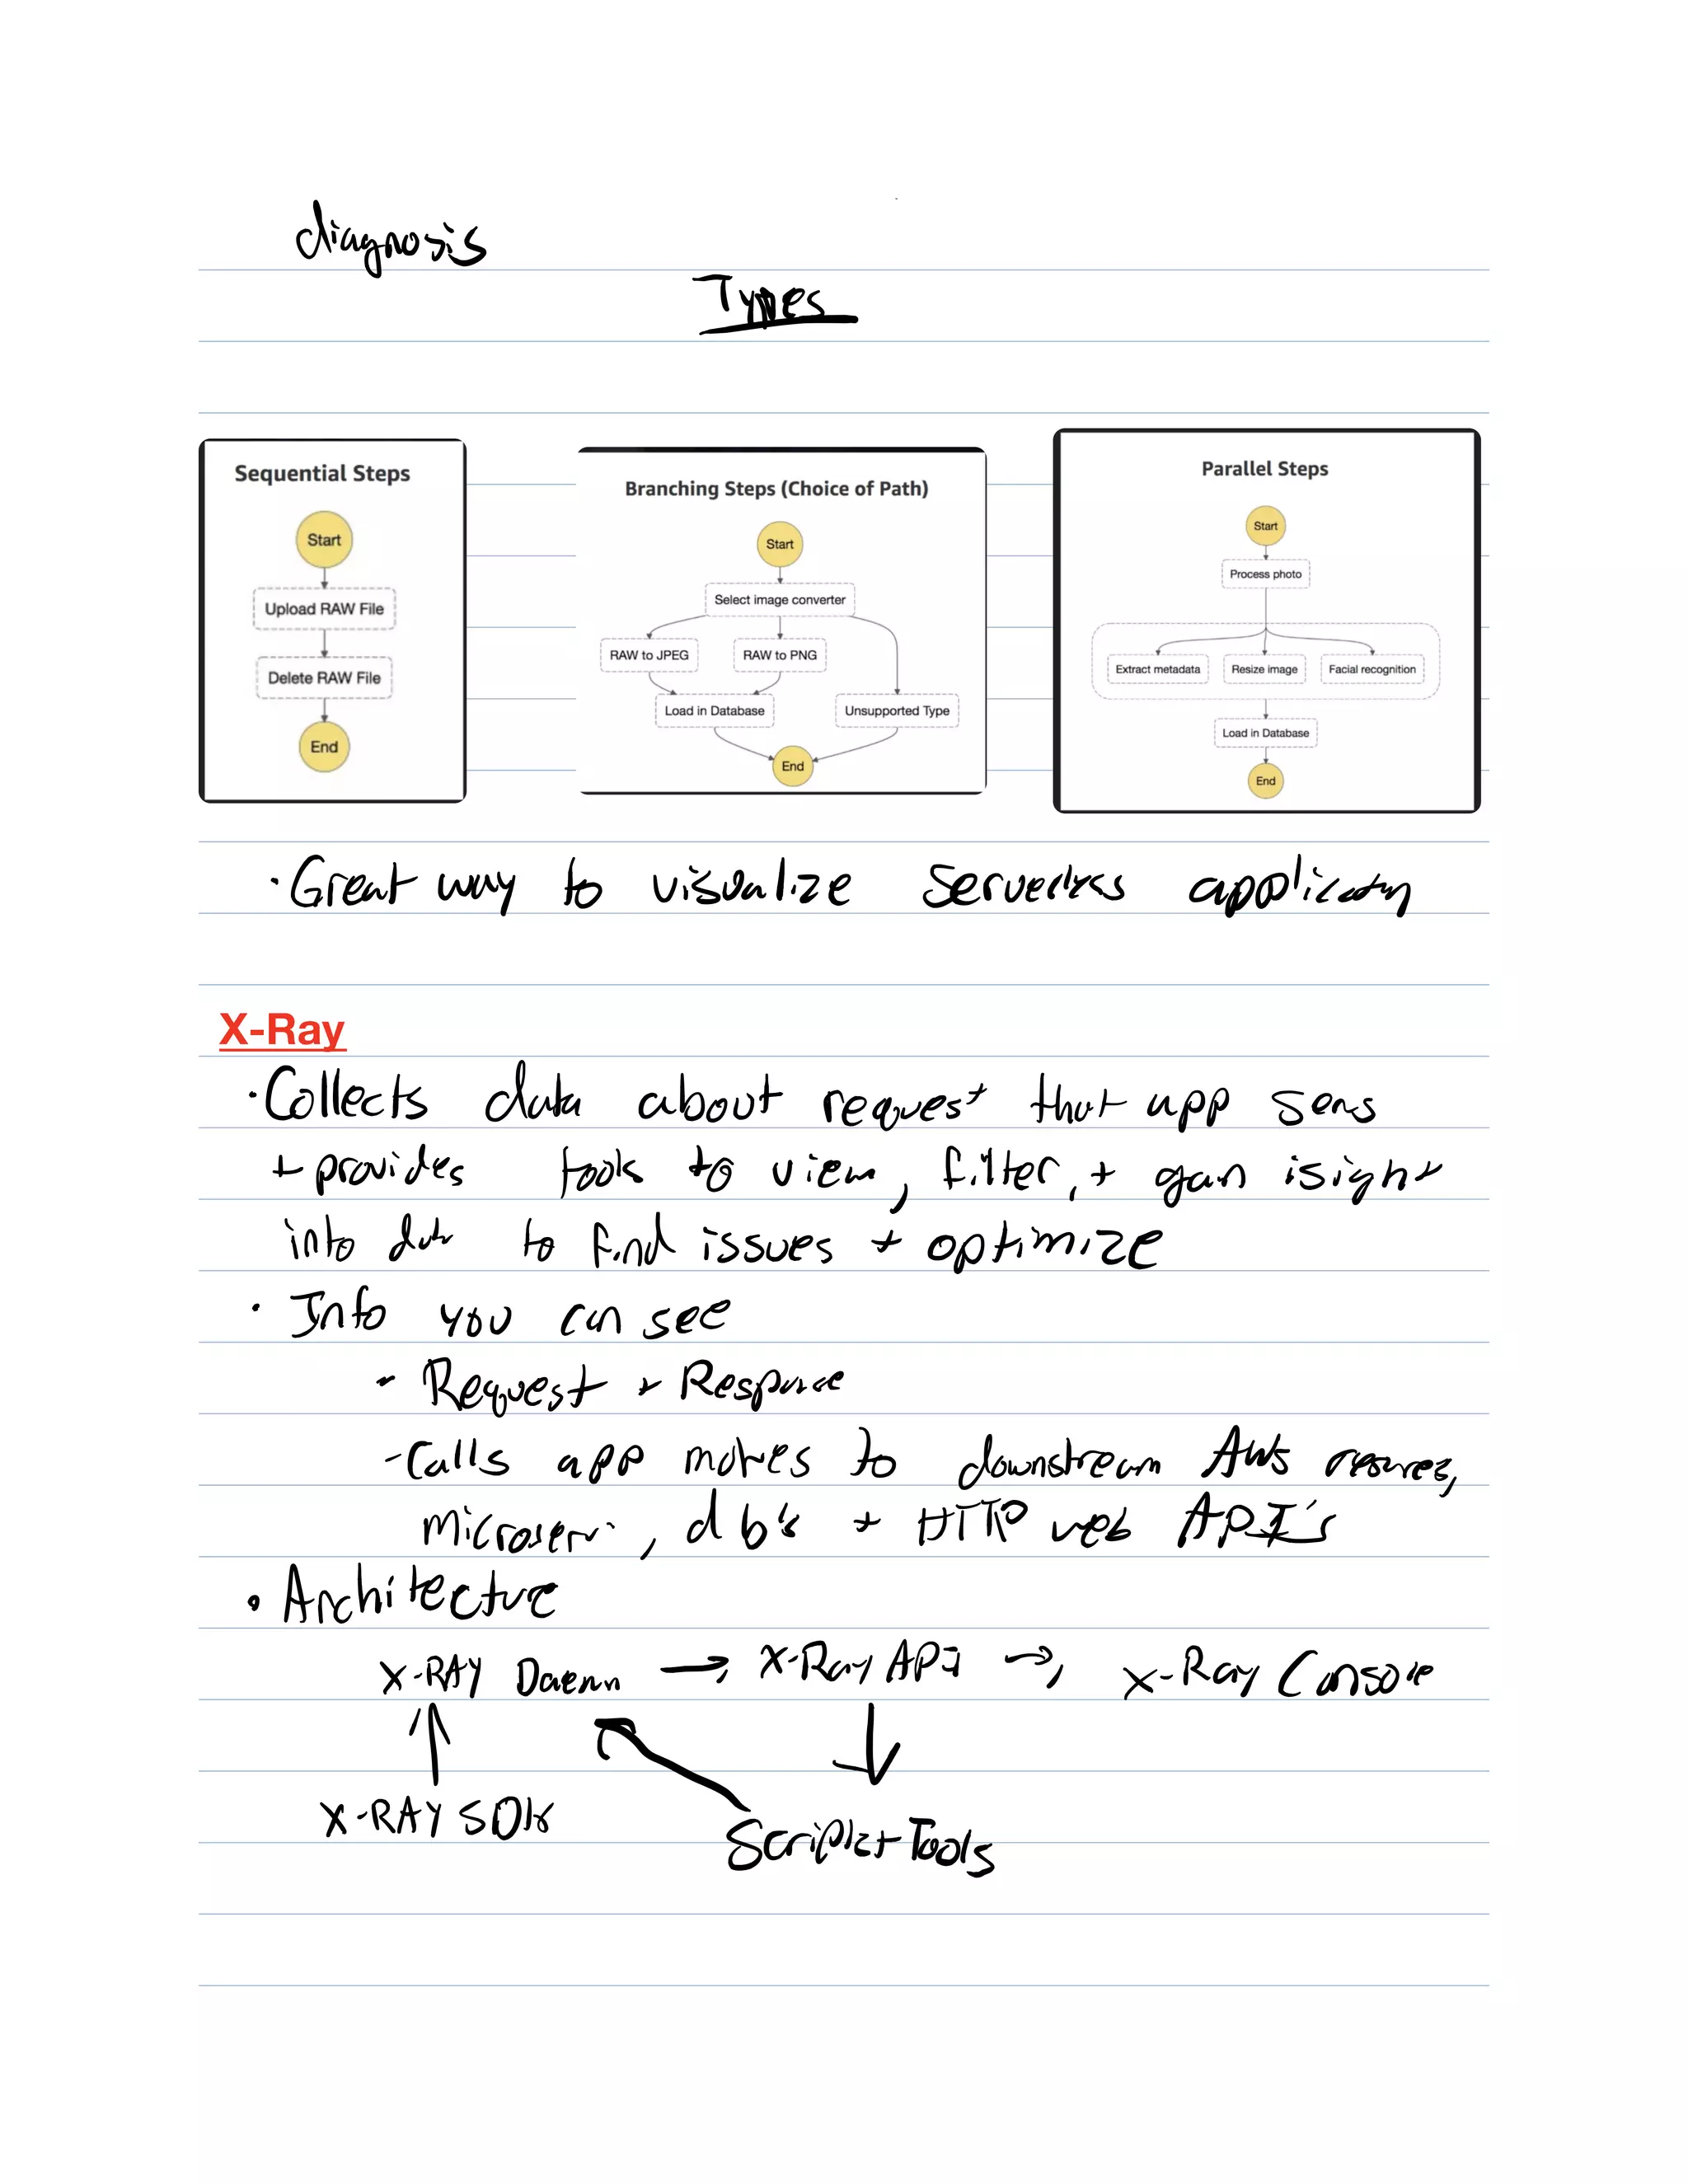 diagnosis
Types
Sequential Steps
Start
Upload RAW File
Delete RAW File
End
Branching Steps (Choice of Path)
Start
Select image converter
RAW to JPEG
RAW to PNG
Load in Database
Unsupported Type
End
Parallel Steps
Start
Process photo
Extract metadata
Resize image
Facial recognition
Load in Database
End
· Great way to visualize serverless
X-Ray
· Collects data about request that app
+ provides tools to view, filter, + gan isight
into to find issues + optimize
· Info you can see
- Request + Response
- Calls app makes to downstream AWS
, db's + HTTP web API's
· Architecture
X-RAY → X-Ray API → X-Ray Console
X-RAY SDK
Tools